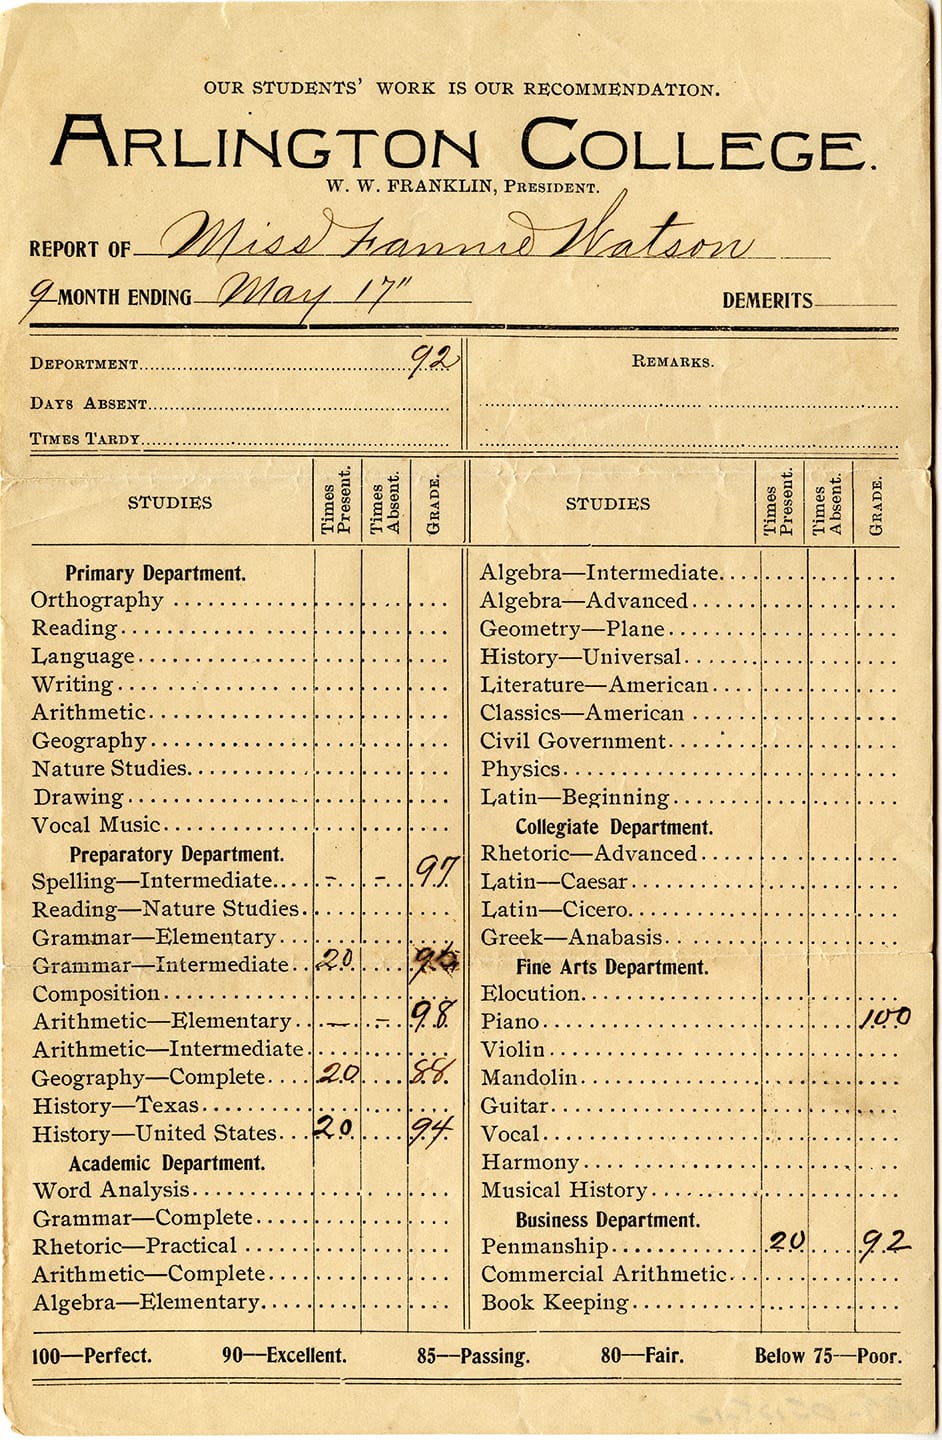 OUR STUDENTS' WORK IS OUR RECOMMENDATION.
ARLINGTON COLLEGE.
W. W. FRANKLIN, PRESIDENT.
REPORT OF Miss Fannie Watson
9 MONTH ENDING May 17" DEMERITS
DEPORTMENT 92 REMARKS.
DAYS ABSENT
TIMES TARDY
STUDIES Times Present. Times Absent. GRADE. STUDIES Times Present. Times Absent. GRADE.
Primary Department.
Orthography
Reading
Language
Writing
Arithmetic
Geography
Nature Studies
Drawing
Vocal Music
Preparatory Department.
Spelling—Intermediate - - 97
Reading—Nature Studies
Grammar—Elementary
Grammar—Intermediate 20
Composition
Arithmetic—Elementary — - 98
Arithmetic—Intermediate
Geography—Complete 20 88
History—Texas
History—United States 20 94
Academic Department.
Word Analysis
Grammar—Complete
Rhetoric—Practical
Arithmetic—Complete
Algebra—Elementary
Algebra—Intermediate
Algebra—Advanced
Geometry—Plane
History—Universal
Literature—American
Classics—American
Civil Government
Physics
Latin—Beginning
Collegiate Department.
Rhetoric—Advanced
Latin—Caesar
Latin—Cicero
Greek—Anabasis
Fine Arts Department.
Elocution
Piano 100
Violin
Mandolin
Guitar
Vocal
Harmony
Musical History
Business Department.
Penmanship 20 92
Commercial Arithmetic
Book Keeping
100—Perfect. 90—Excellent. 85—Passing. 80—Fair. Below 75—Poor.